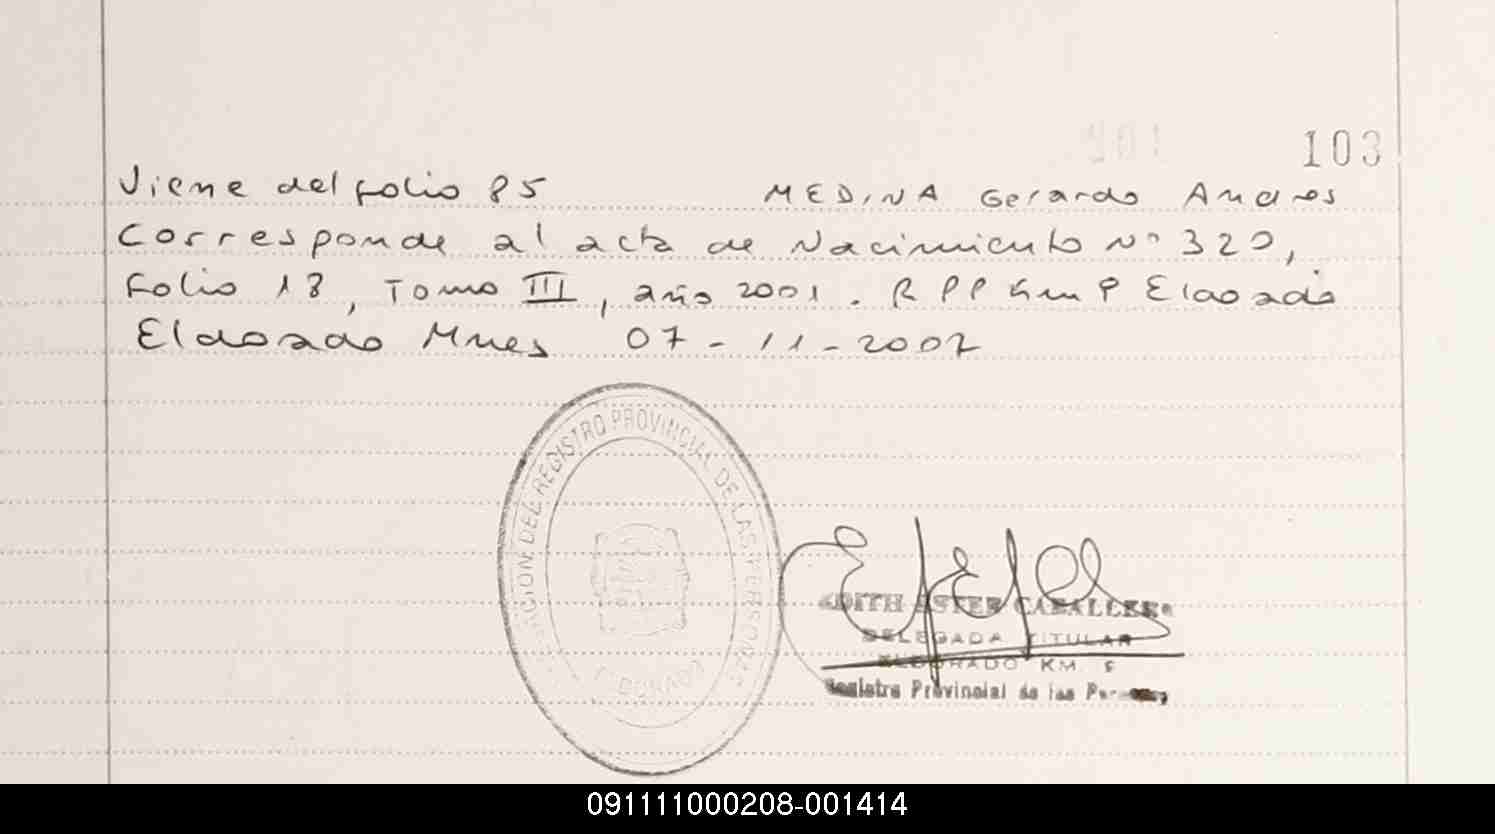 103
Viene del folio 85 MEDINA Gerardo Andres
Corresponde al acta de Nacimiento Nº 320,
Folio 18, Tomo III, año 2001. RPP Km 9 Eldorado
Eldorado Mnes 07-11-2002
DEL REGISTRO PROVINCIAL DE LAS PERSONAS
ELDORADO
EDITH ESTER CABALLERO
DELEGADA TITULAR
ELDORADO KM.
Registro Provincial de las Personas
091111000208-001414